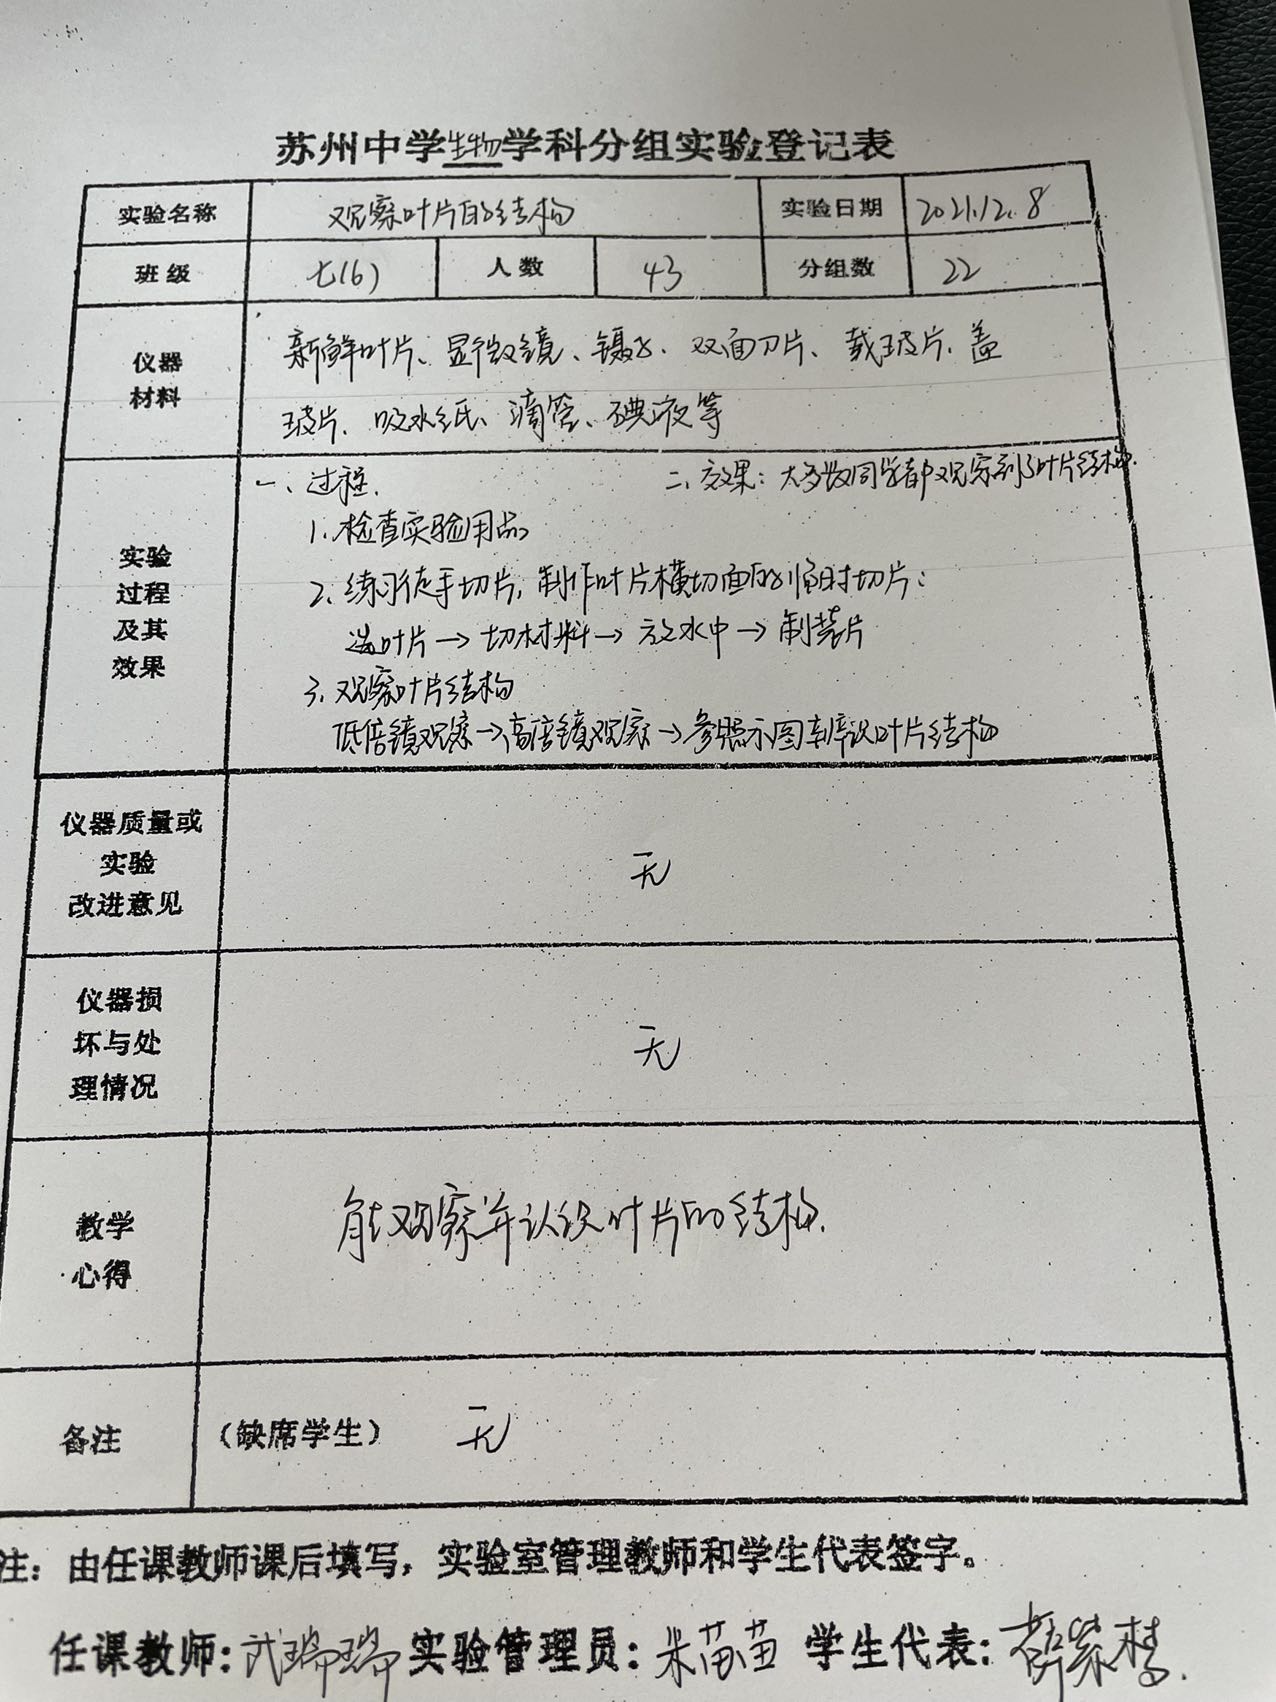 苏州中学生物学科分组实验登记表
实验名称 观察叶片的结构 实验日期 2021.12.8
班级 七(6) 人数 43 分组数 22
仪器
材料
新鲜叶片、显微镜、镊子、双面刀片、载玻片、盖
玻片、吸水纸、滴管、碘液等
实验
过程
及其
效果
一、过程.
二、效果：大多数同学都观察到了叶片结构.
1.检查实验用品
2.练习徒手切片，制作叶片横切面的临时切片：
选叶片→切材料→放水中→制装片
3.观察叶片结构
低倍镜观察→高倍镜观察→参照示图辨识叶片结构
仪器质量或
实验
改进意见
无
仪器损
坏与处
理情况
无
教学
心得
能观察并认识叶片的结构.
备注 (缺席学生) 无
注：由任课教师课后填写，实验室管理教师和学生代表签字。
任课教师: 武瑞瑞 实验管理员: 朱苗苗 学生代表: 薛紫